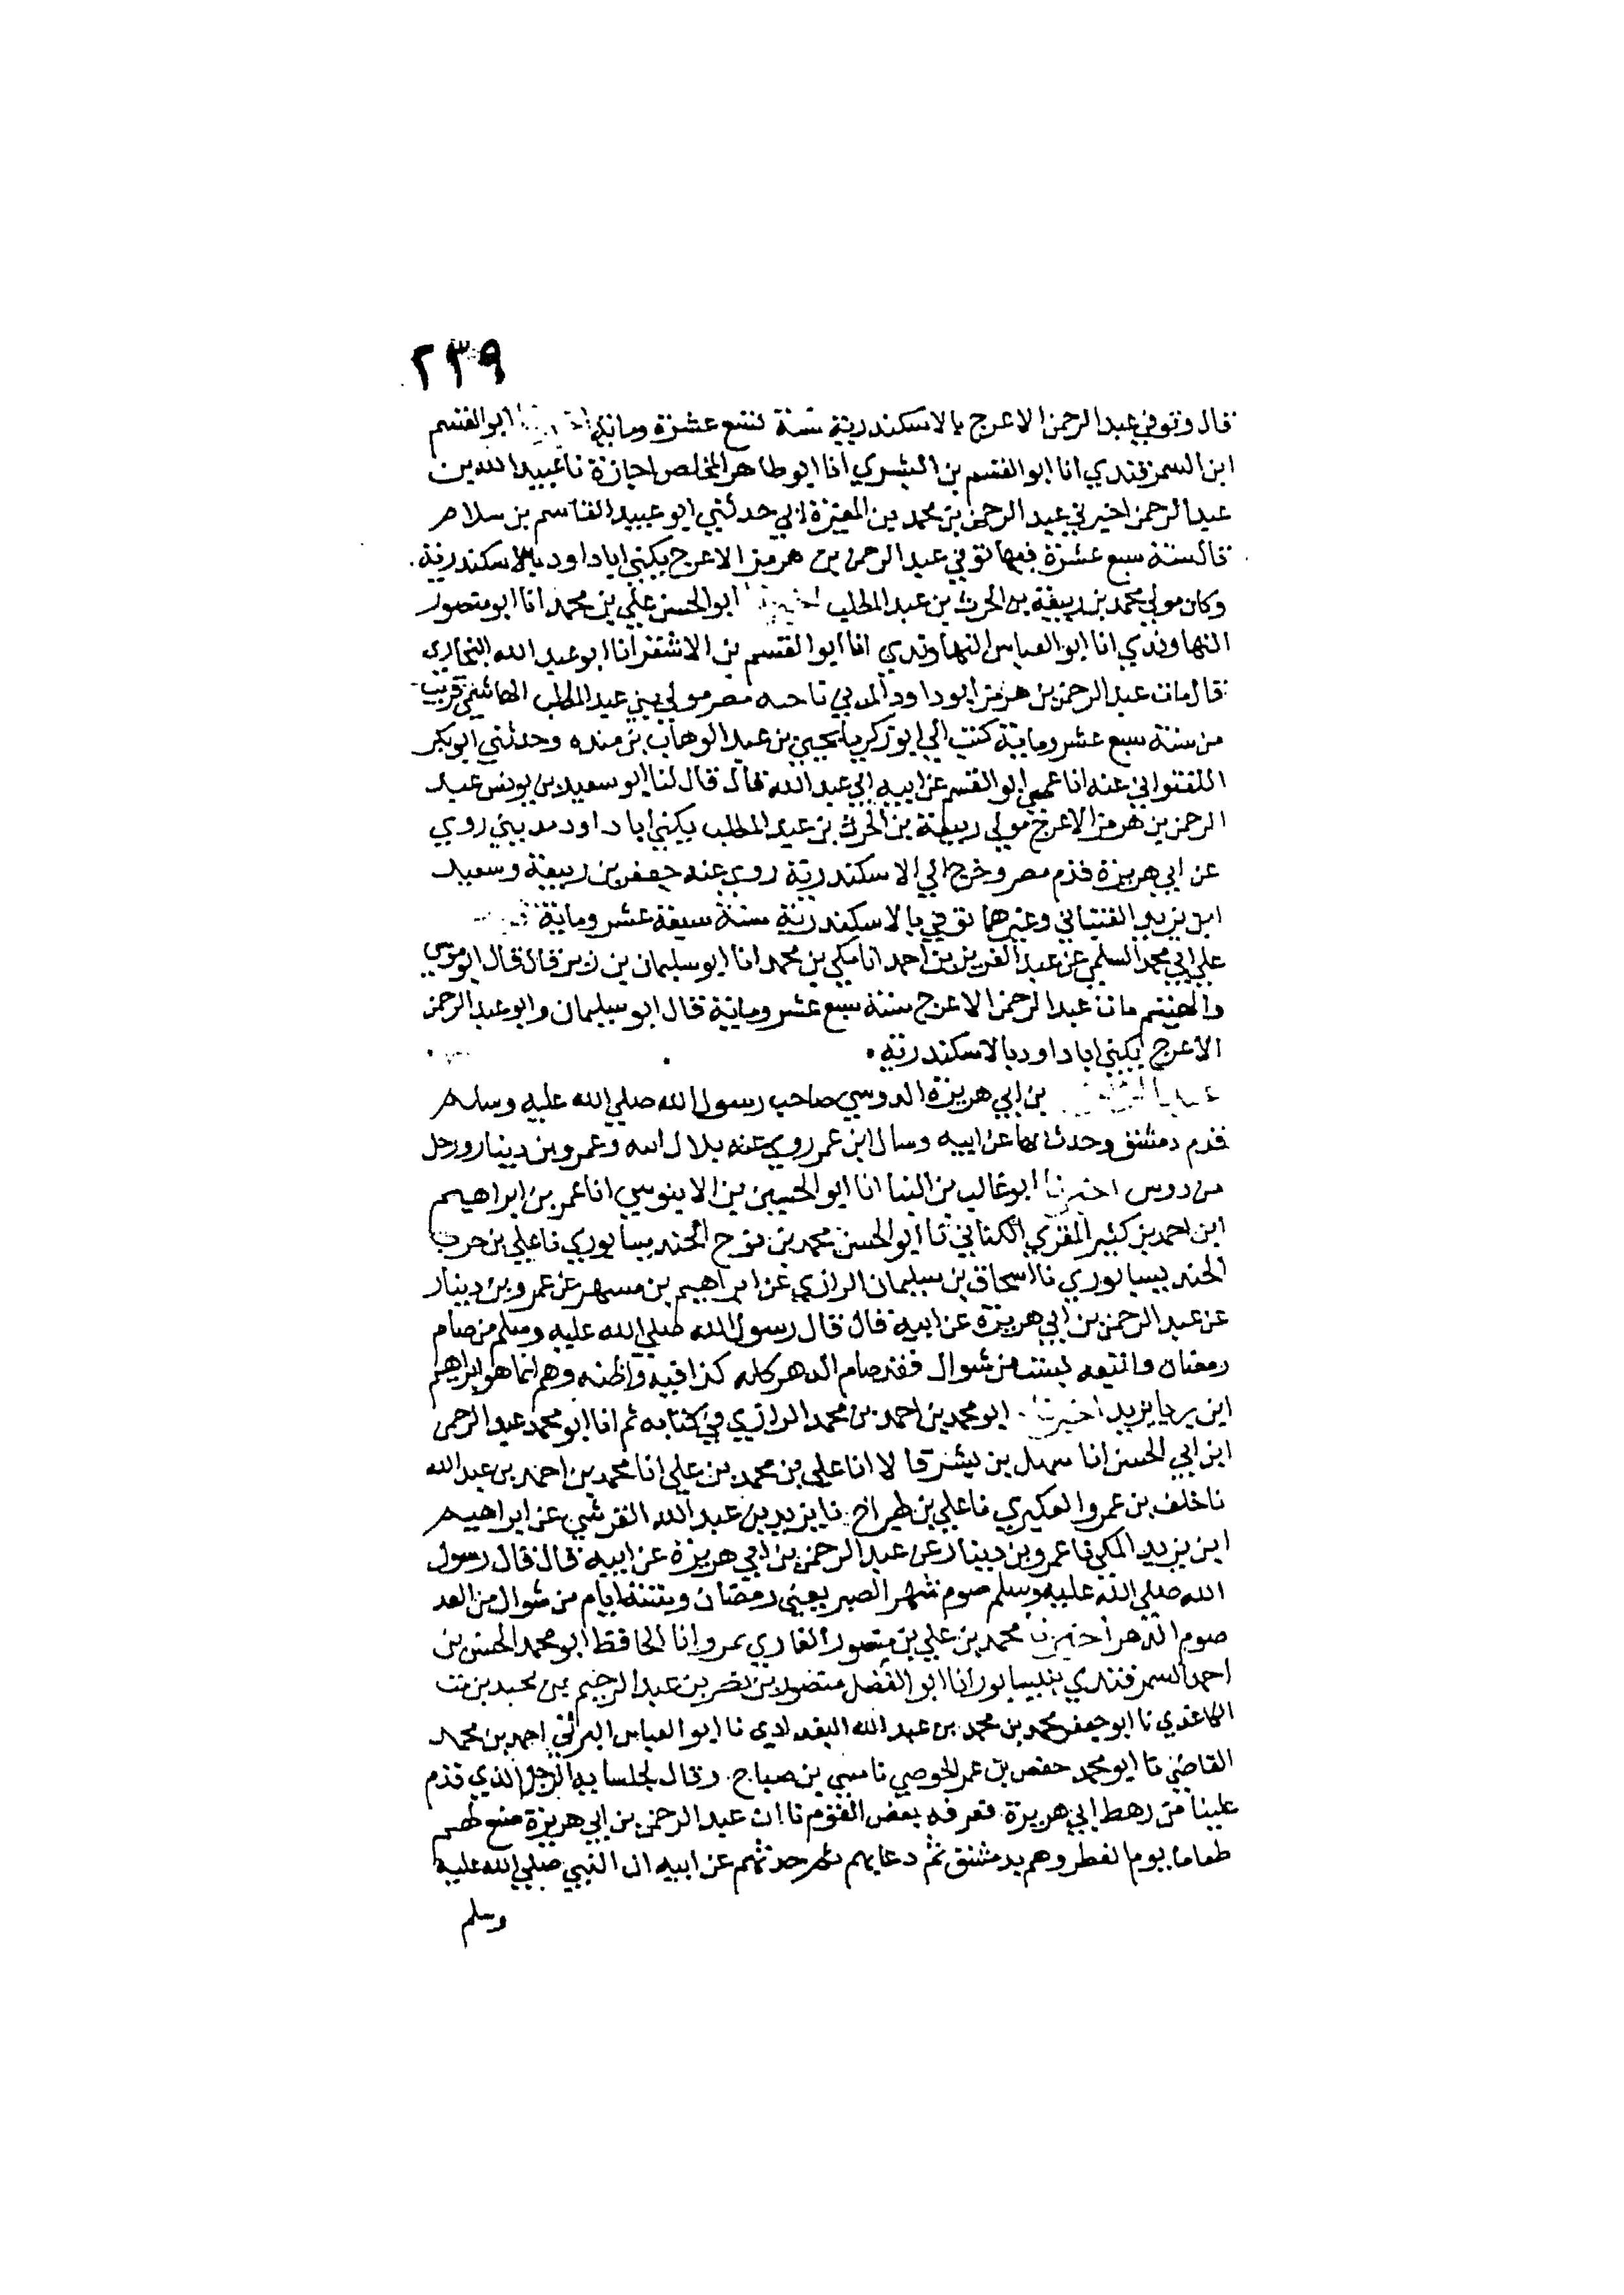 ٢٣٩
قال وتوفي عبد الرحمن الاعرج بالاسكندرية سنة تسع عشرة ومائة اخبرنا ابو القسم
ابن السمرقندي انا ابو القسم بن البسري انا ابو طاهر المخلص اجازة نا عبيد الله بن
عبد الرحمن اخبرني عبد الرحمن بن محمد بن المغيرة ابي حدثني ابو عبيد القاسم بن سلام
قال سنة سبع عشرة فيها توفي عبد الرحمن بن هرمز الاعرج يكنى ابا داود بالاسكندرية
وكان مولى محمد بن ربيعة بن الحرث بن عبد المطلب اخبرنا ابو الحسن علي بن محمد انا ابو منصور
النهاوندي انا ابو العباس النهاوندي انا ابو القسم بن الاشقر انا ابو عبد الله البخاري
قال مات عبد الرحمن بن هرمز ابو داود المدني ناحيه مصر مولى بني عبد المطلب الهاشمي قريب
من سنة سبع عشر وماية كتب الي ابو زكريا يحيى بن عبد الوهاب بن منده وحدثني ابو بكر
اللفتواني عنه انا عمي ابو القسم عن ابيه ابي عبد الله قال قال لنا ابو سعيد بن يونس عبد
الرحمن بن هرمز الاعرج مولى ربيعة بن الحرث بن عبد المطلب يكنى ابا داود مديني روي
عن ابي هريرة قدم مصر وخرج الى الاسكندرية روى عنه جعفر بن ربيعة وسعيد
ابن يزيد القتباني وغيرهما توفي بالاسكندرية سنة سبعة عشر وماية
علي ابي محمد السلمي عن عبد العزيز بن احمد انا مكي بن محمد انا ابو سليمان بن زبر قال قال ابو موسى
والهيثم مات عبد الرحمن الاعرج سنة سبع عشر وماية قال ابو سليمان وابو عبد الرحمن
الاعرج يكنى ابا داود بالاسكندرية
عبد الرحمن بن ابي هريرة الدوسي صاحب رسول الله صلى الله عليه وسلم
قدم دمشق وحدث بها عن ابيه وسال ابن عمر روى عنه بلال ابنه وعمرو بن دينار ورجل
من دوس اخبرنا ابو غالب بن البنا انا ابو الحسين بن الابنوسي انا عمر بن ابراهيم
ابن احمد بن كثير المقري الكتاني نا ابو الحسن محمد بن نوح الجنديسابوري نا علي بن حرب
الجنديسابوري نا اسحاق بن سليمان الرازي عن ابراهيم بن مسهر عن عمرو بن دينار
عن عبد الرحمن بن ابي هريرة عن ابيه قال قال رسول الله صلى الله عليه وسلم من صام
رمضان واتبعه بست من شوال فقد صام الدهر كله كذا فيه واظنه وهم انما هو ابراهيم
ابن يزيد اخبرنا ابو محمد بن احمد بن محمد الرازي في كتابه ثم انا ابو محمد عبد الرحمن
ابن ابي الحسن انا سهل بن بشر قالا انا علي بن محمد بن علي انا محمد بن احمد بن عبد الله
نا خلف بن عمرو العكبري نا علي بن طبراخ نا يزيد بن عبد الله القرشي عن ابراهيم
ابن يزيد المكي نا عمرو بن دينار عن عبد الرحمن بن ابي هريرة عن ابيه قال قال رسول
الله صلى الله عليه وسلم صوم شهر الصبر يعني رمضان وستة ايام من شوال من العد
صوم الدهر اخبرنا محمد بن علي بن منصور الغازي بمرو انا الحافظ ابو محمد الحسن بن
احمد السمرقندي بنيسابور انا ابو الفضل منصور بن نصر بن عبد الرحيم بن بنت
الكاغدي نا ابو جعفر محمد بن محمد بن عبد الله البغدادي نا ابو العباس البرتي احمد بن محمد
القاضي نا ابو محمد حفص بن عمر الحوضي نا بن صباح وقال لجلسايه الرجل الذي قدم
علينا من رهط ابي هريرة فعرفه بعض القوم نا ان عبد الرحمن بن ابي هريرة صنع لهم
طعاما يوم الفطر وهم بدمشق ثم دعا بهم ثم حدثهم عن ابيه ان النبي صلى الله عليه
وسلم